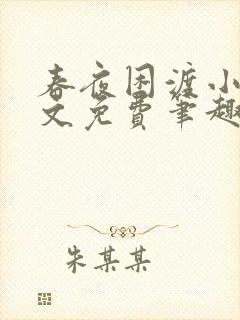 春夜困渡小
文免费笔趣
朱某某